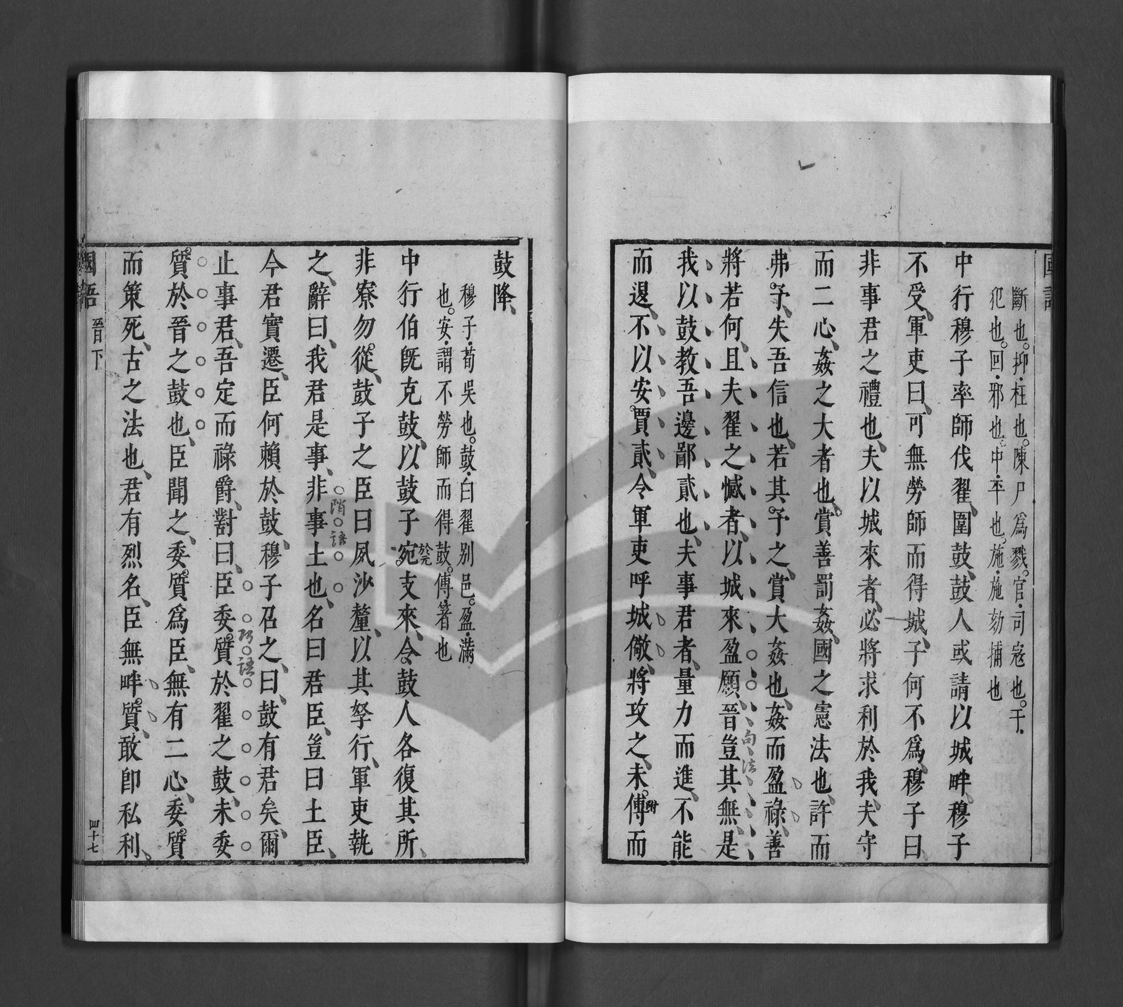 國語
斷也。抑·枉也。陳尸爲戮。官·司寇也。干·
犯也。回·邪也。中·平也。施·施劾捕也
中行穆子率師伐翟、圍鼓、鼓人或請以城畔、穆子
不受、軍吏曰、可無勞師而得城、子何不爲、穆子曰、
非事君之禮也、夫以城來者、必將求利於我、夫守
而二心、姦之大者也、賞善罰姦、國之憲法也、許而
弗予、失吾信也、若其予之、賞大姦也、姦而盈祿、善
將若何、且夫翟之憾者、以城來盈願、晉豈其無、是
句法
我以鼓教吾邊鄙貳也、夫事君者、量力而進、不能
而退、不以安賈貳、令軍吏呼城儆、將攻之、未傅而
附
鼓降、
穆子·荀吳也。鼓·白翟別邑。盈·滿
也。安·謂不勞師而得鼓。傅·著也
中行伯旣克鼓、以鼓子宛支來、令鼓人各復其所、
於元
非寮勿從、鼓子之臣曰夙沙釐、以其孥行、軍吏執
之、辭曰、我君是事、非事土也、名曰君臣、豈曰土臣、
今君實遷、臣何賴於鼓、穆子召之、曰、鼓有君矣、爾
止事君、吾定而祿爵、對曰、臣委質於翟之鼓、未委
質於晉之鼓也、臣聞之、委質爲臣、無有二心、委質
而策死、古之法也、君有烈名、臣無畔質、敢卽私利、
國語
晉下
四十七